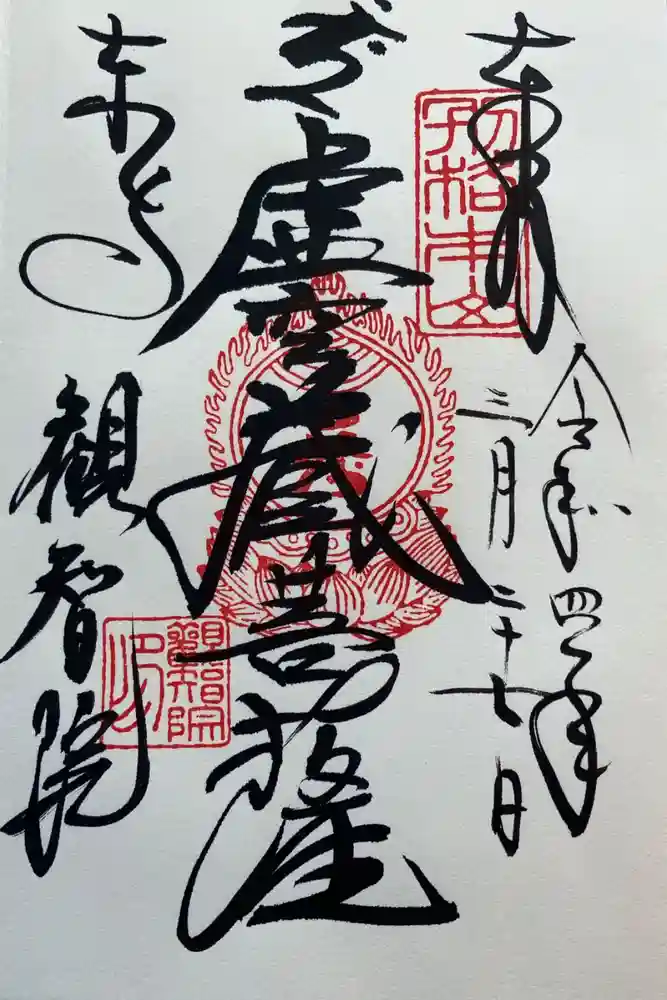 奉拝
別格本山
令和四年
三月二十七日
虚空蔵菩薩
東寺
観智院
觀智院印